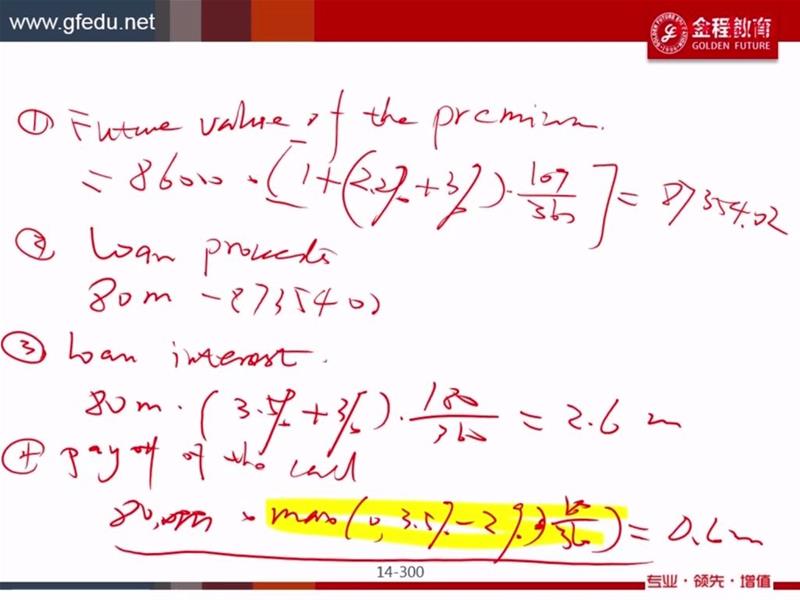 www.gfedu.net
金程教育
GOLDEN FUTURE
① Future value of the premium.
= 86000 · [1+(2.2%+3%) · 109/360] = 87354.02
② Loan proceeds
80m - 87354 02
③ Loan interest.
80m · (3.5%+3%) · 180/360 = 2.6 m
④ payoff of the call
max(0, 3.5%-2%) = 0.6m
14-300
专业·领先·增值